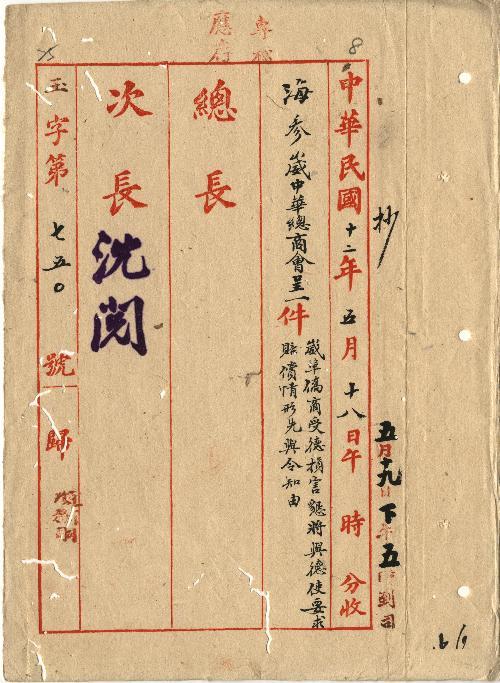 8
抄
五月十九日下午五時到司
中華民國十二年五月十八日午 時 分收
海參崴中華總商會呈一件
崴埠僑商受德損害懇將與德使要求
賠償情形先與令知由
總長
次長
沈閱
五字第七五〇號歸